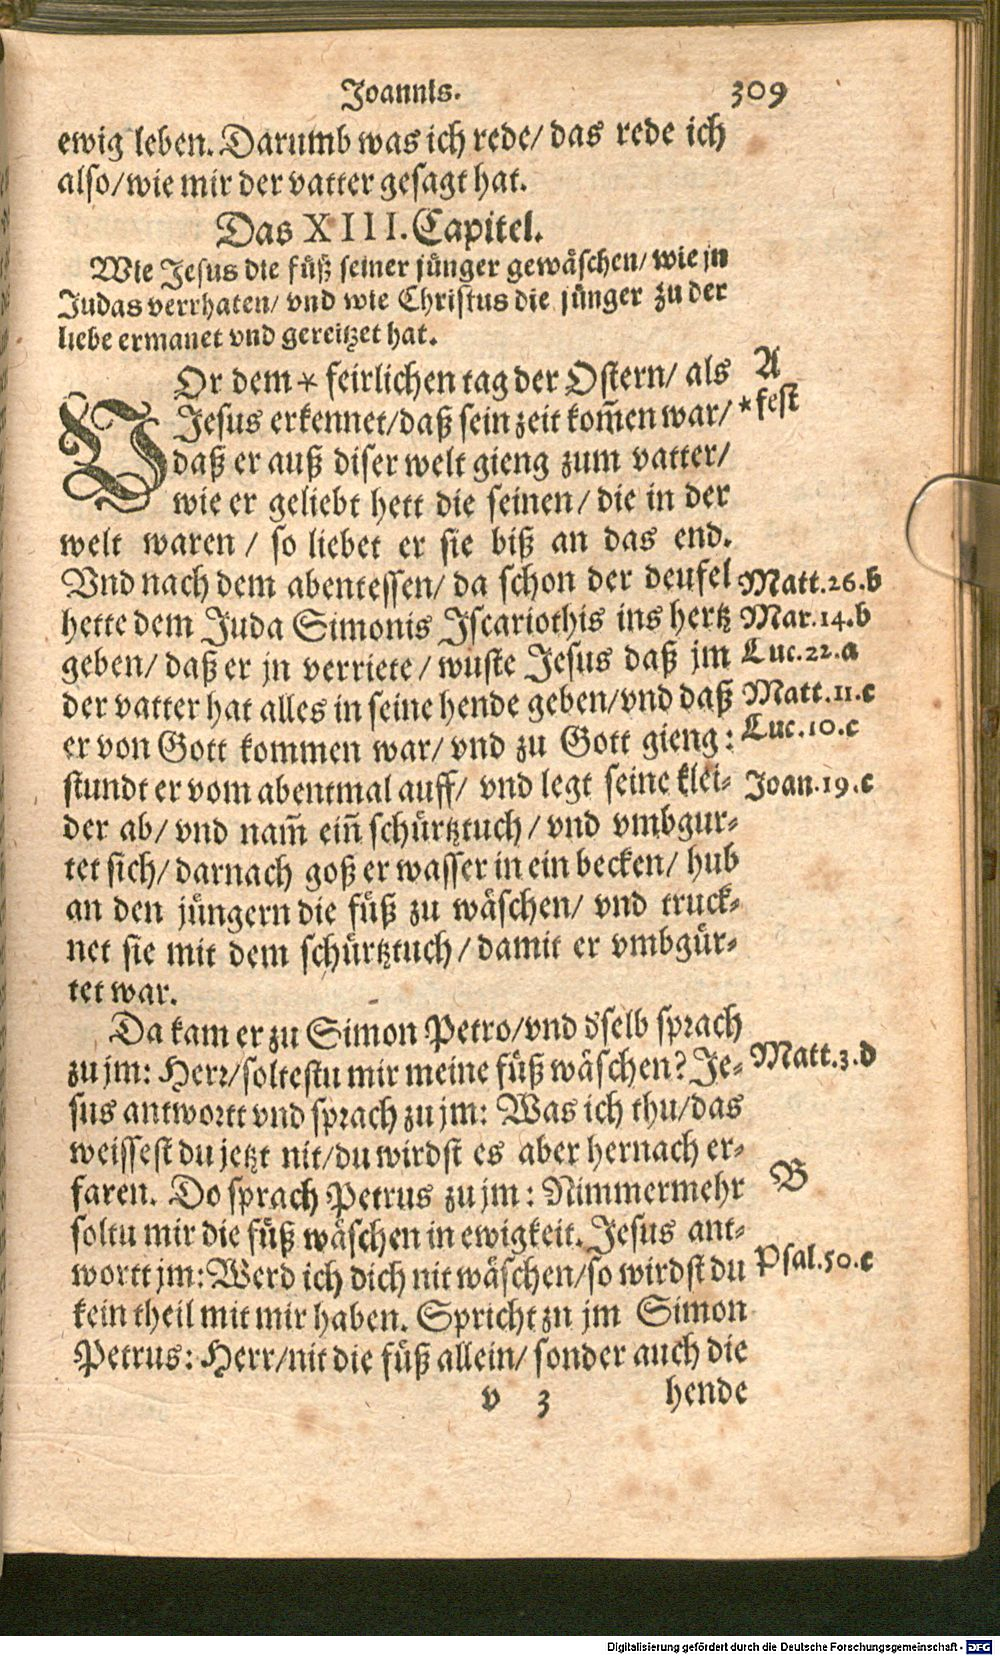 Joannis. 309
ewig leben. Darumb was ich rede/ das rede ich
also/ wie mir der vatter gesagt hat.
Das XIII. Capitel.
Wie Jesus die füß seiner jünger gewäschen/ wie jn
Judas verrhaten/ vnd wie Christus die jünger zu der
liebe ermanet vnd gereitzet hat.
VOr dem * feirlichen tag der Ostern/ als
A
Jesus erkennet/ daß sein zeit kom̃en war/
*fest
daß er auß diser welt gieng zum vatter/
wie er geliebt hett die seinen/ die in der
welt waren / so liebet er sie biß an das end.
Vnd nach dem abentessen/ da schon der deufel
Matt.26.b
hette dem Juda Simonis Iscariothis ins hertz
Mar.14.b
geben/ daß er jn verriete/ wuste Jesus daß jm
Luc.22.a
der vatter hat alles in seine hende geben/ vnd daß
Matt.11.c
er von Gott kommen war/ vnd zu Gott gieng:
Luc.10.c
stundt er vom abentmal auff/ vnd legt seine klei-
Joan.19.c
der ab/ vnd nam̃ eiñ schürtztuch/ vnd vmbgur-
tet sich/ darnach goß er wasser in ein becken/ hub
an den jüngern die füß zu wäschen/ vnd truck-
net sie mit dem schürtztuch/ damit er vmbgür-
tet war.
Da kam er zu Simon Petro/ vnd dselb sprach
zu jm: Herr/ soltestu mir meine füß wäschen? Je-
Matt.3.d
sus antwortt vnd sprach zu jm: Was ich thu/ das
weissest du jetzt nit/ du wirdst es aber hernach er-
faren. Do sprach Petrus zu jm: Nimmermehr
B
soltu mir die füß wäschen in ewigkeit. Jesus ant-
wortt jm: Werd ich dich nit wäschen/ so wirdst du
Psal.50.c
kein theil mit mir haben. Spricht zu jm Simon
Petrus: Herr/ nit die füß allein/ sonder auch die
v 3 hende
Digitalisierung gefördert durch die Deutsche Forschungsgemeinschaft - DFG